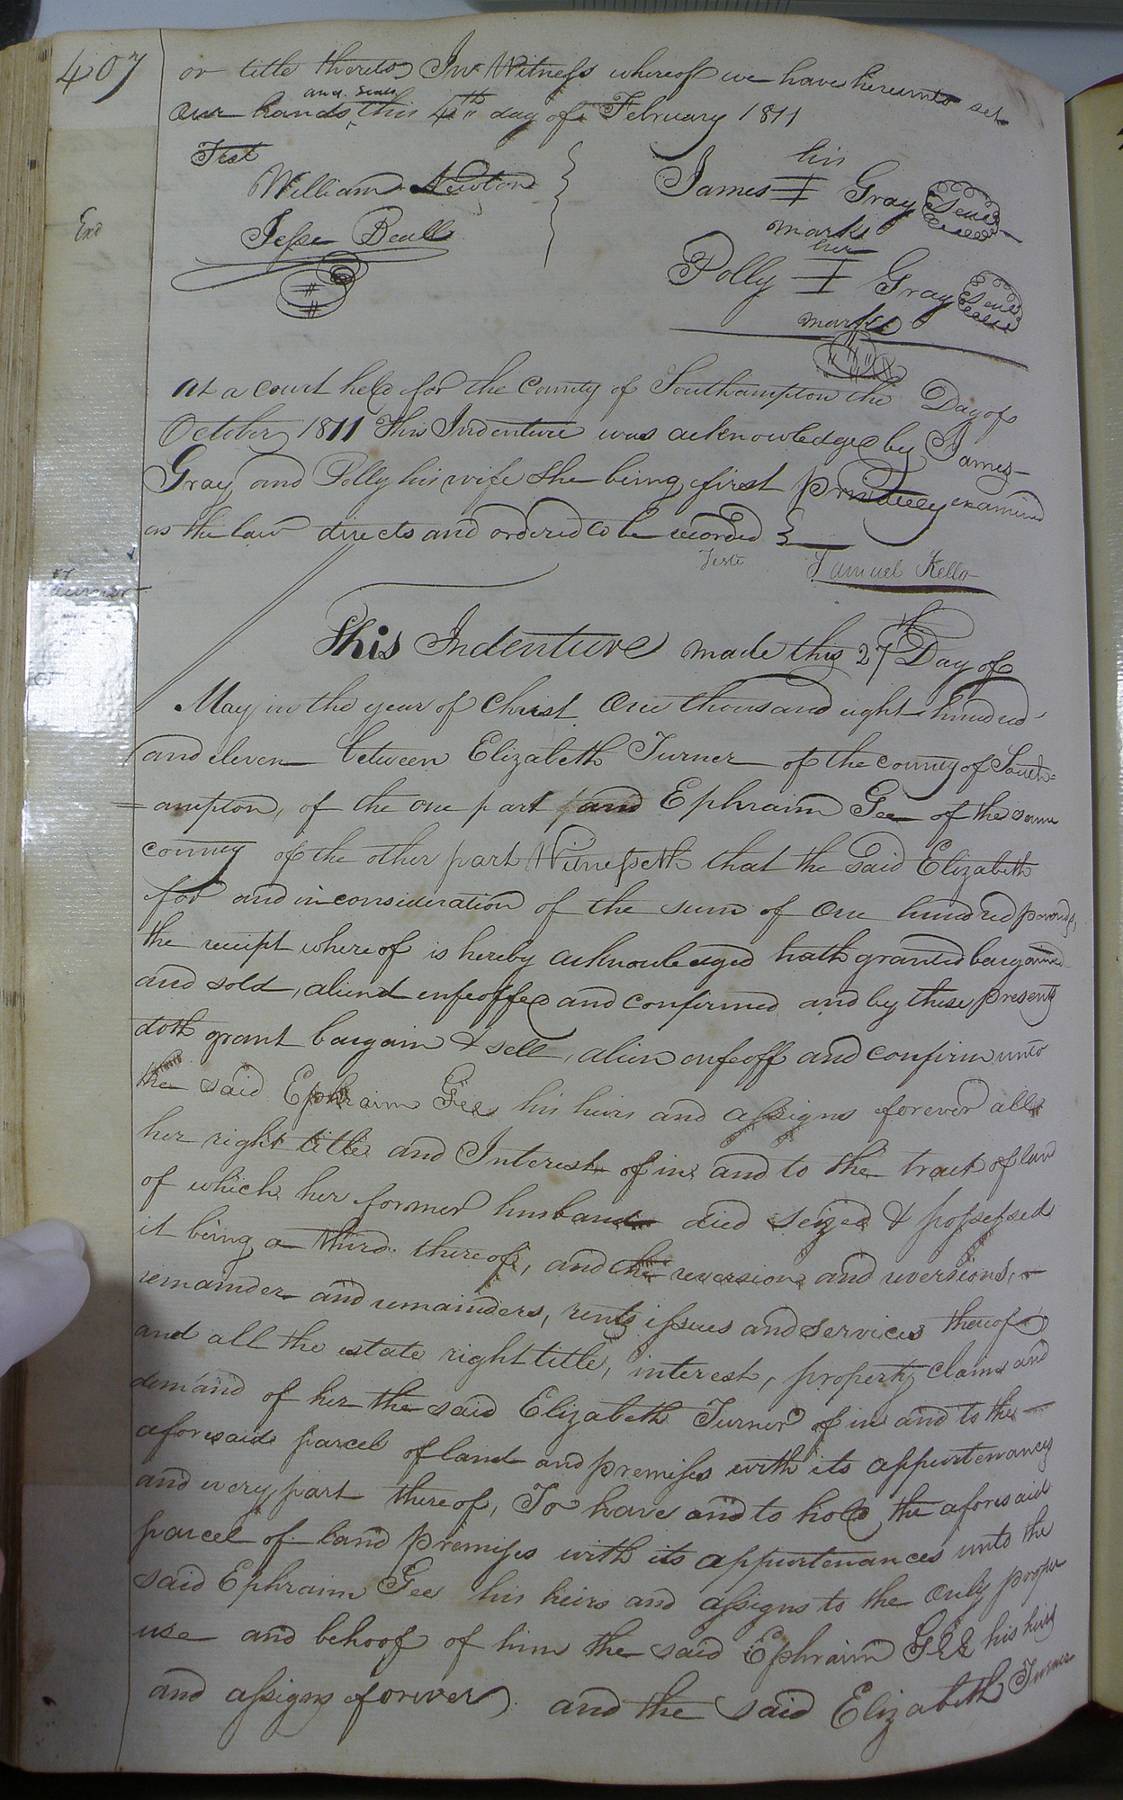 407
or title thereto In Witness whereof we have hereunto set
and seals
our hands this 4th day of February 1811
Test
his
William Newton
James I Gray Seal
mark
End
Jesse Beall
her
Polly I Gray Seal
mark
At a court held for the County of Southampton the Day of
October 1811 This Indenture was acknowledged by James
Gray and Polly his wife She being first privately examined
as the law directs and ordered to be recorded
Teste Samuel Kello
Turner
This Indenture made this 27th Day of
May in the year of Christ One thousand eight hundred
and eleven between Elizabeth Turner of the county of South=
=ampton, of the one part and Ephraim Gee of the same
county of the other part Witnesseth that the said Elizabeth
for and in consideration of the sum of One hundred pounds,
the receipt whereof is hereby acknowledged hath granted bargained
and sold, aliend enfeoffed and confirmed and by these presents
doth grant bargain & sell, alien enfeoff and confirm unto
the said Ephraim Gee his heirs and assigns forever all
her right title and Interest of in and to the tract of land
of which her former husband died seized & possessed
it being a third thereof, and the reversion and reversions,
remainder and remainders, rents issues and services thereof
and all the estate right title, interest, property claim and
demand of her the said Elizabeth Turner of in and to the
aforesaid parcel of land and premises with its appurtenances
and every part thereof, To have and to hold the aforesaid
parcel of land premises with its appurtenances unto the
said Ephraim Gee his heirs and assigns to the only proper
use and behoof of him the said Ephraim Gee his heirs
and assigns forever and the said Elizabeth Turner